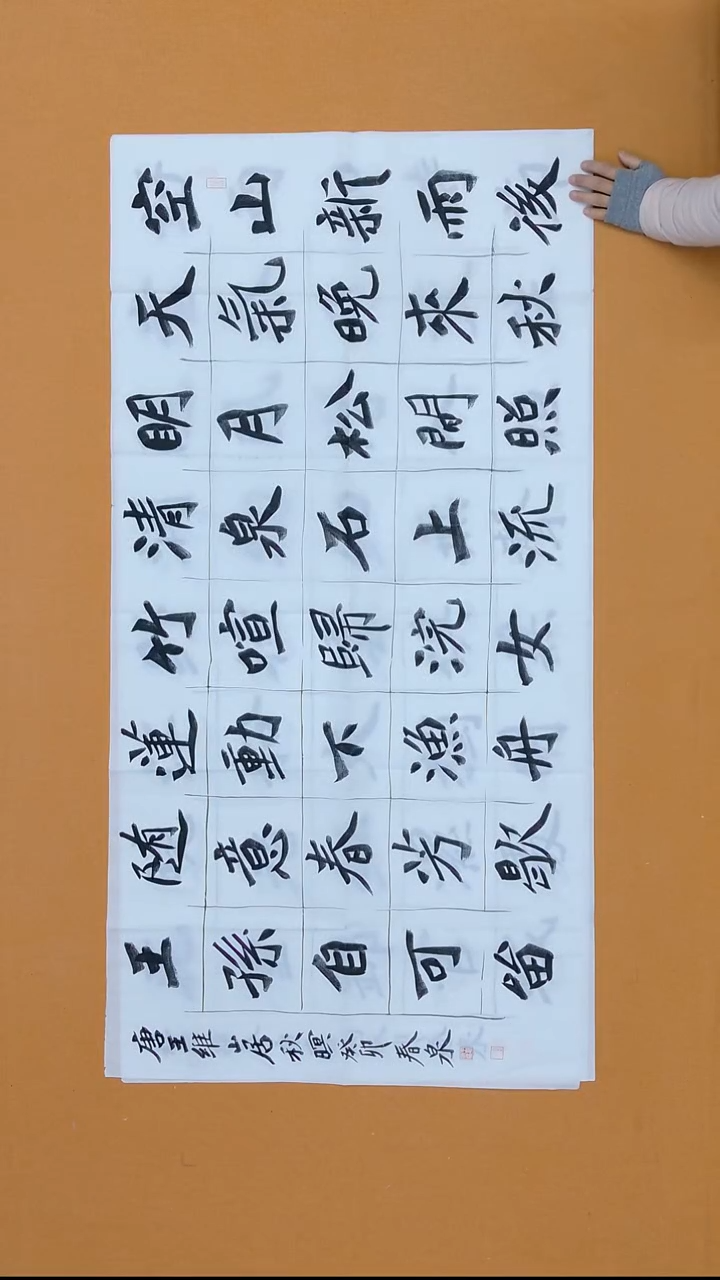 空山新雨後
天氣晚來秋
明月松間照
清泉石上流
竹喧歸浣女
蓮動下漁舟
随意春芳歇
王孫自可留
唐王維山居秋暝癸卯春泉